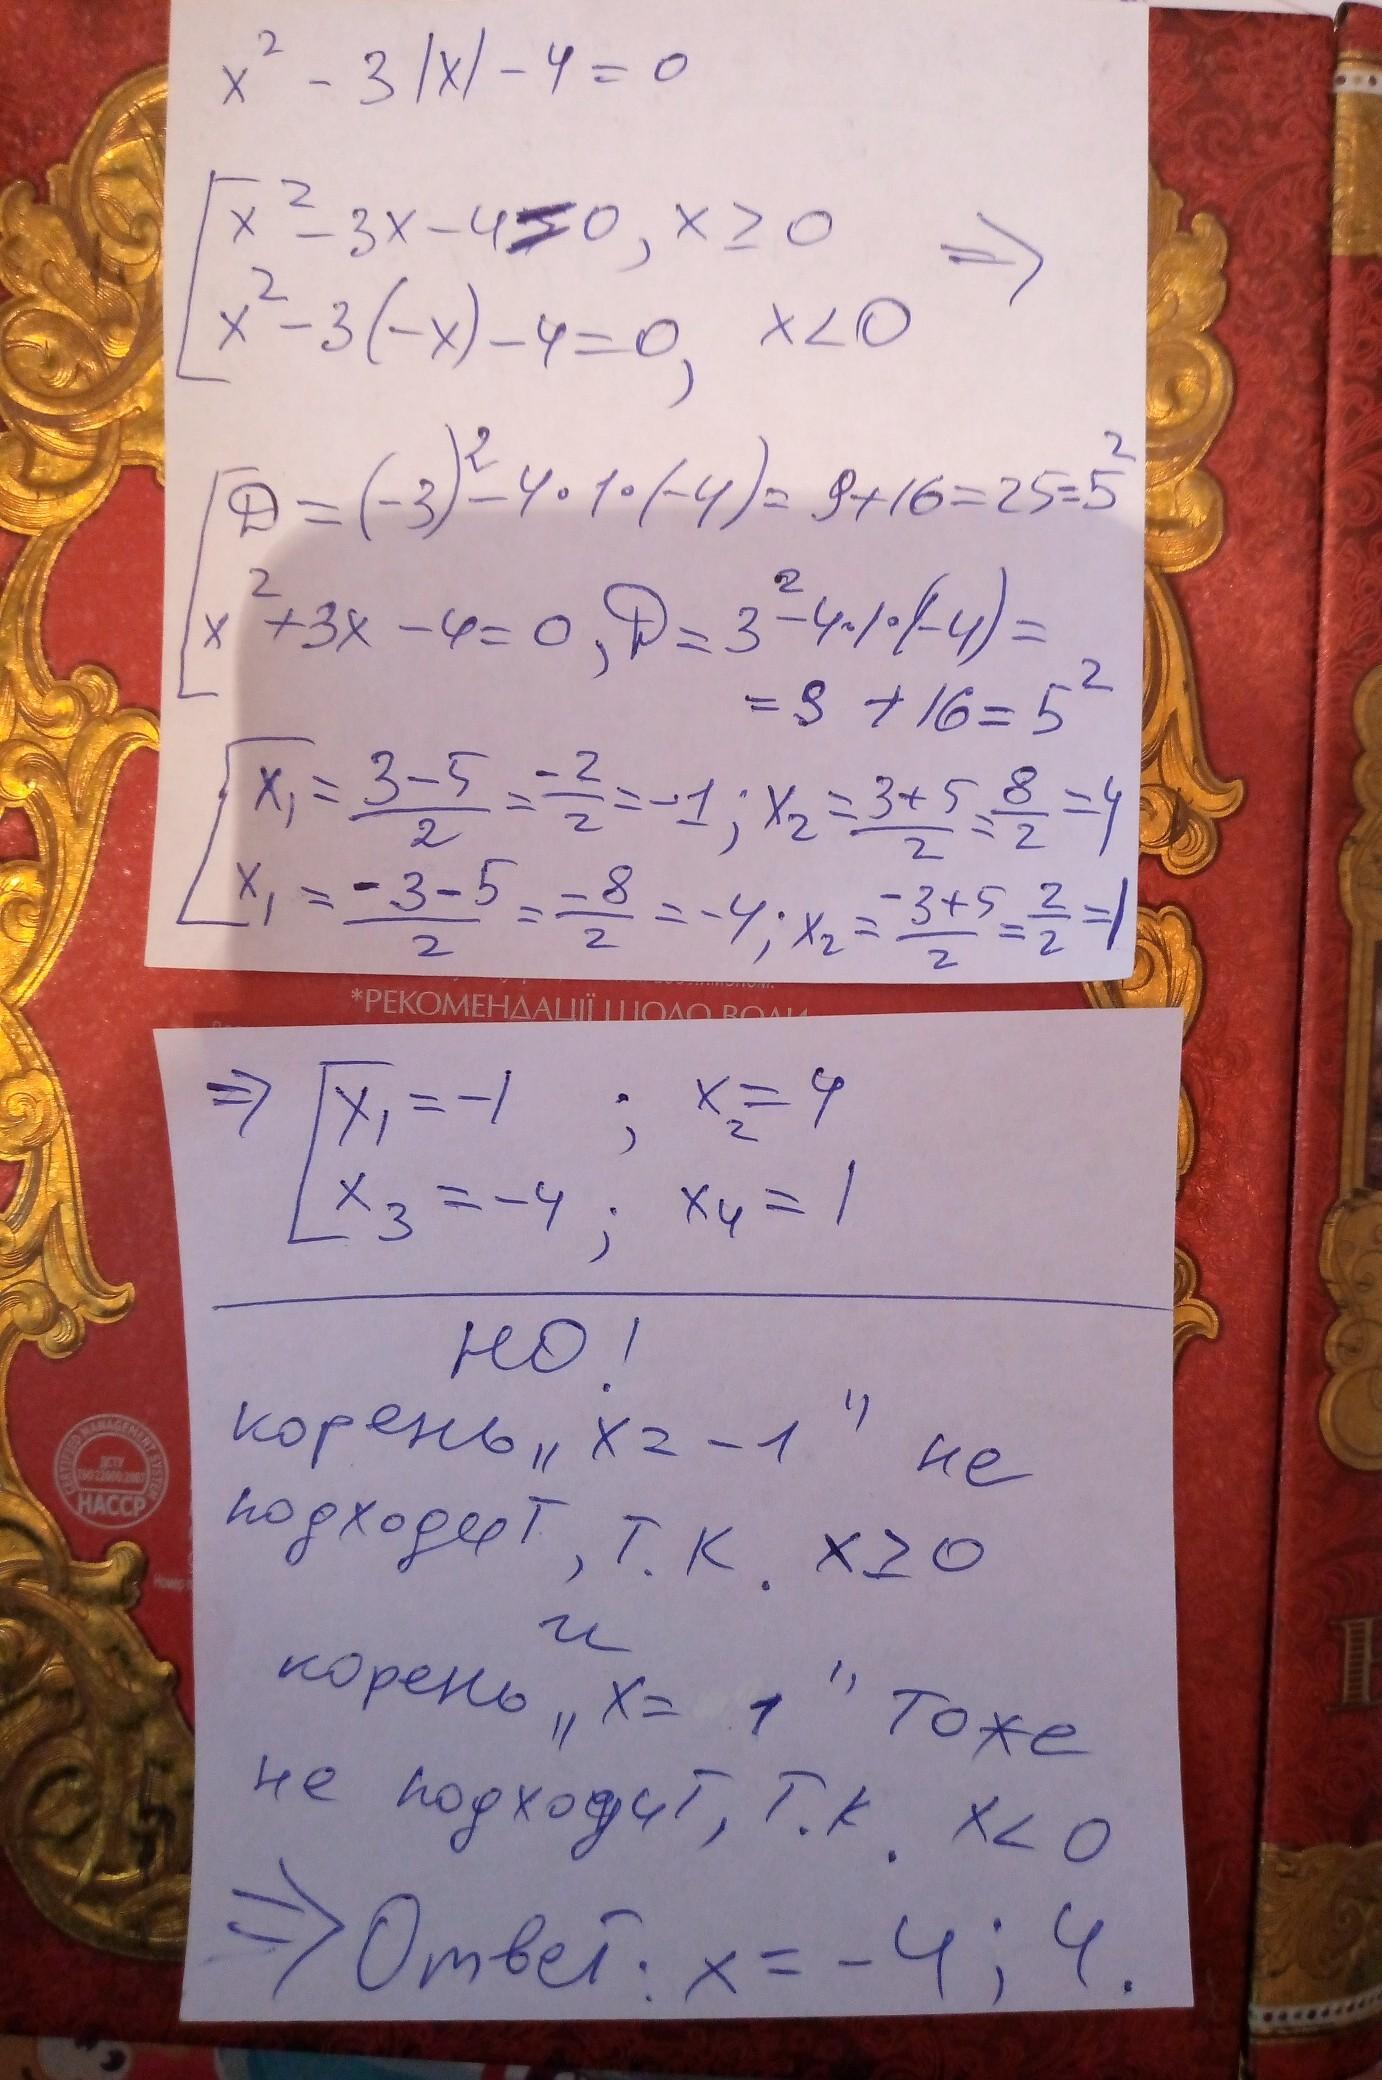 x² - 3|x| - 4 = 0
x² - 3x - 4 = 0, x ≥ 0 ⇒
x² - 3(-x) - 4 = 0, x < 0
D = (-3)² - 4·1·(-4) = 9 + 16 = 25 = 5²
x² + 3x - 4 = 0, D = 3² - 4·1·(-4) =
= 9 + 16 = 5²
x₁ = (3-5)/2 = -2/2 = -1; x₂ = (3+5)/2 = 8/2 = 4
x₁ = (-3-5)/2 = -8/2 = -4; x₂ = (-3+5)/2 = 2/2 = 1
*РЕКОМЕНДАЦІЇ ЩОДО ВОДИ
⇒ x₁ = -1 ; x₂ = 4
x₃ = -4 ; x₄ = 1
НО!
корень „x = -1" не
подходит, т.к. x ≥ 0
и
корень „x = 1" тоже
не подходит, т.к. x < 0
⇒ Ответ: x = -4; 4.
CERTIFIED MANAGEMENT SYSTEM
ДСТУ
HACCP